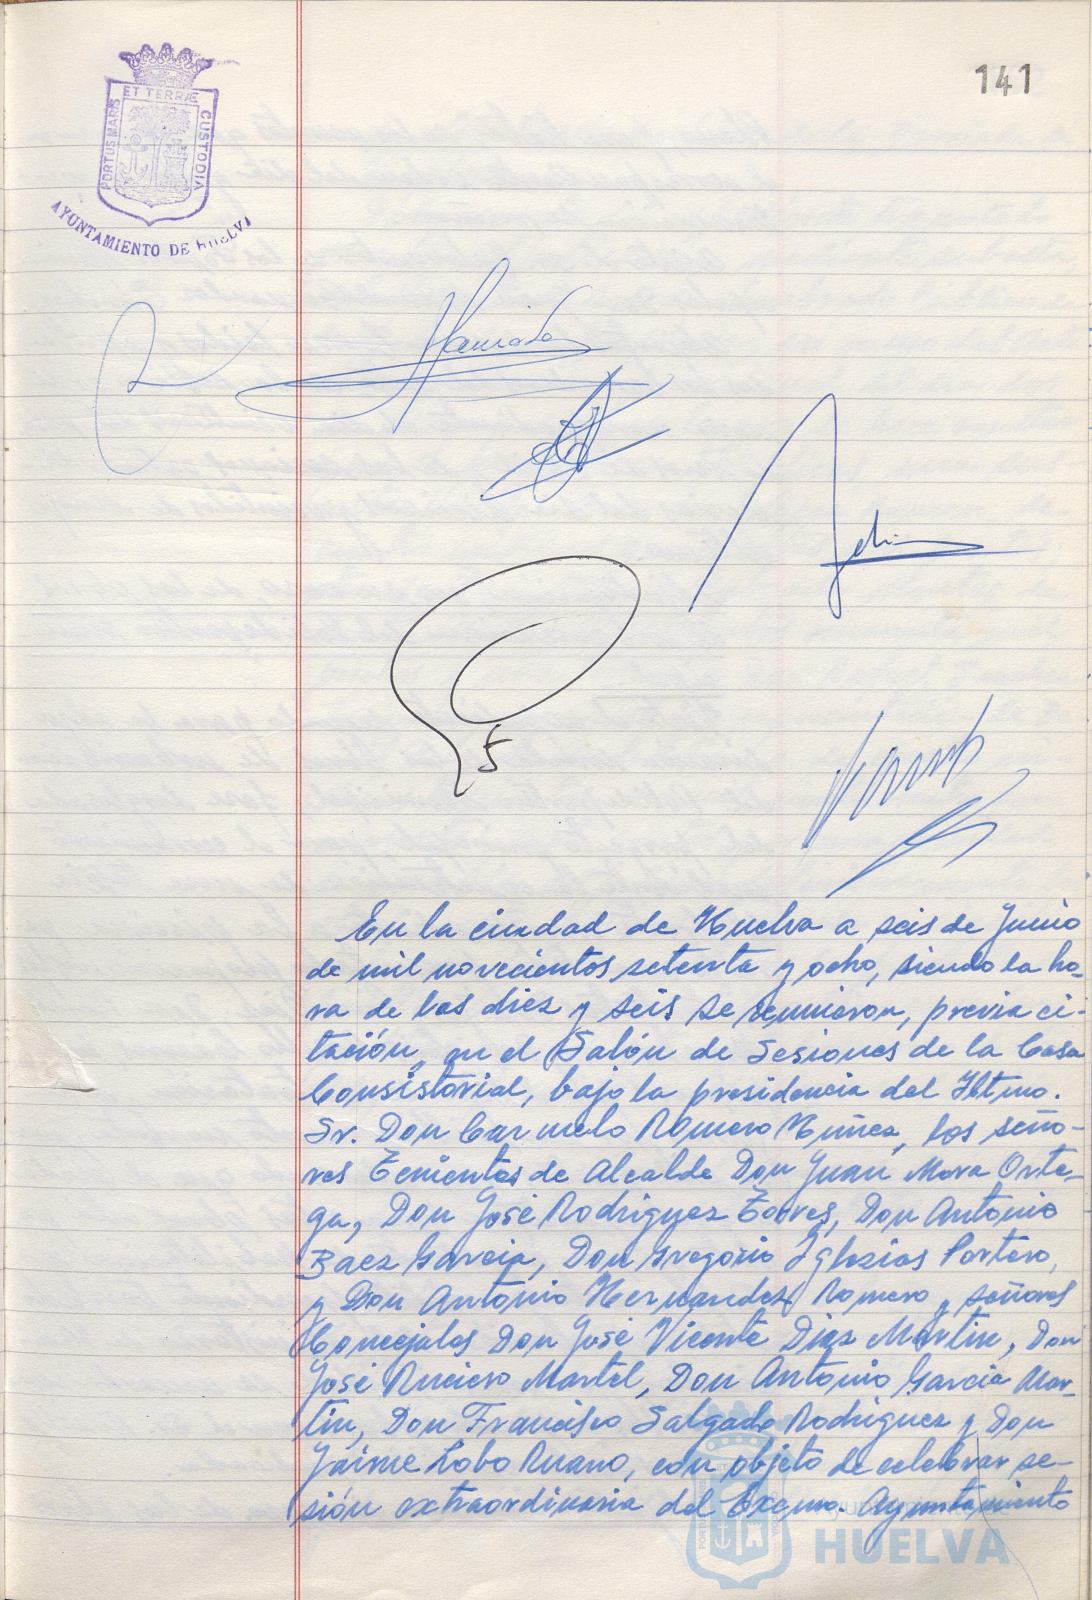 141
ET TERRÆ
PORTUS MARIS
CUSTODIA
AYUNTAMIENTO DE HUELVA
En la ciudad de Huelva a seis de Junio
de mil novecientos setenta y ocho, siendo la ho-
ra de las diez y seis se reunieron, previa ci-
tación, en el Salón de Sesiones de la Casa
Consistorial, bajo la presidencia del Iltmo.
Sr. Don Carmelo Romero Núñez, los seño-
res Tenientes de Alcalde Don Juan Mora Orte-
ga, Don José Rodriguez Torres, Don Antonio
Baez Garcia, Don Gregorio Iglesias Portero,
y Don Antonio Hernandez Romero y señores
Concejales Don José Vicente Diaz Martin, Don
José Ruciero Martel, Don Antonio Garcia Mar-
tin, Don Francisco Salgado Rodriguez y Don
Jaime Lobo Ruano, con objeto de celebrar se-
sión extraordinaria del Excmo. Ayuntamiento
HUELVA